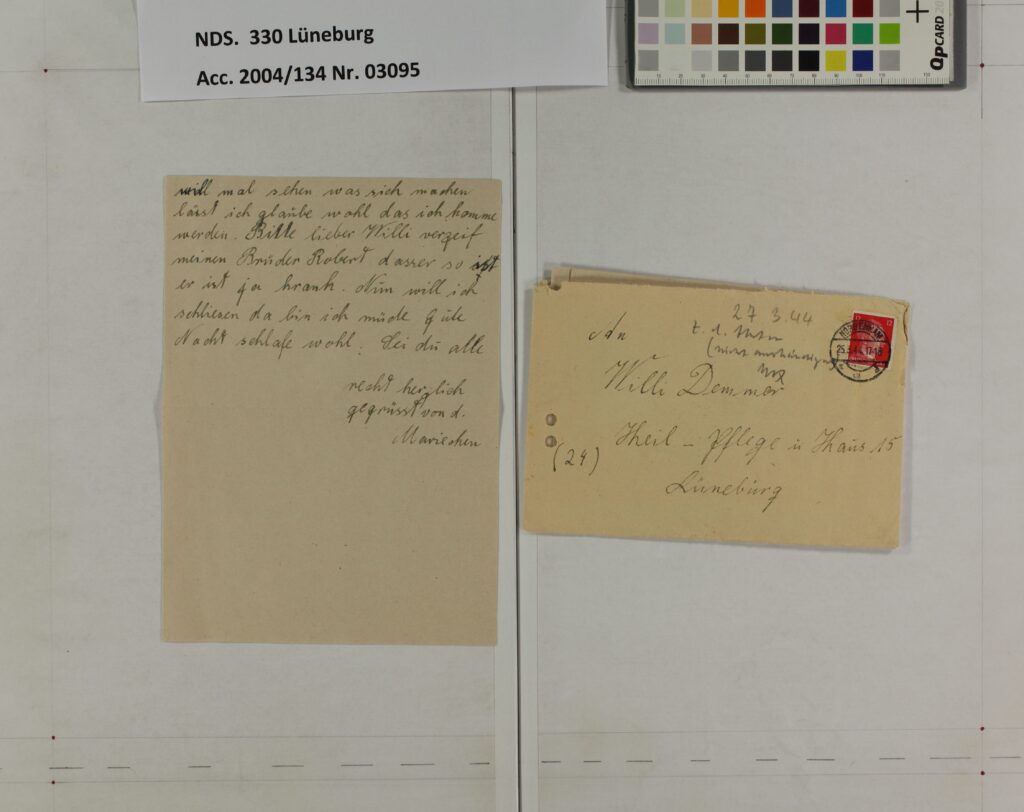 NDS. 330 Lüneburg
Acc. 2004/134 Nr. 03095
QPCARD 20
will mal sehen was sich machen
lässt ich glaube wohl das ich komme
werden. Bitte lieber Willi verzeif
meinen Bruder Robert dasser so ist
er ist ja krank. Nun will ich
schliesen da bin ich müde Gute
Nacht schlafe wohl. Sei du alle
recht herzlich
gegrüsst von d.
Mariechen
27 3.44
z. d. Akten
(nicht aushändigen)
An
Willi Demmer
Heil - Pflege u Haus 15
(24)
Lüneburg
12